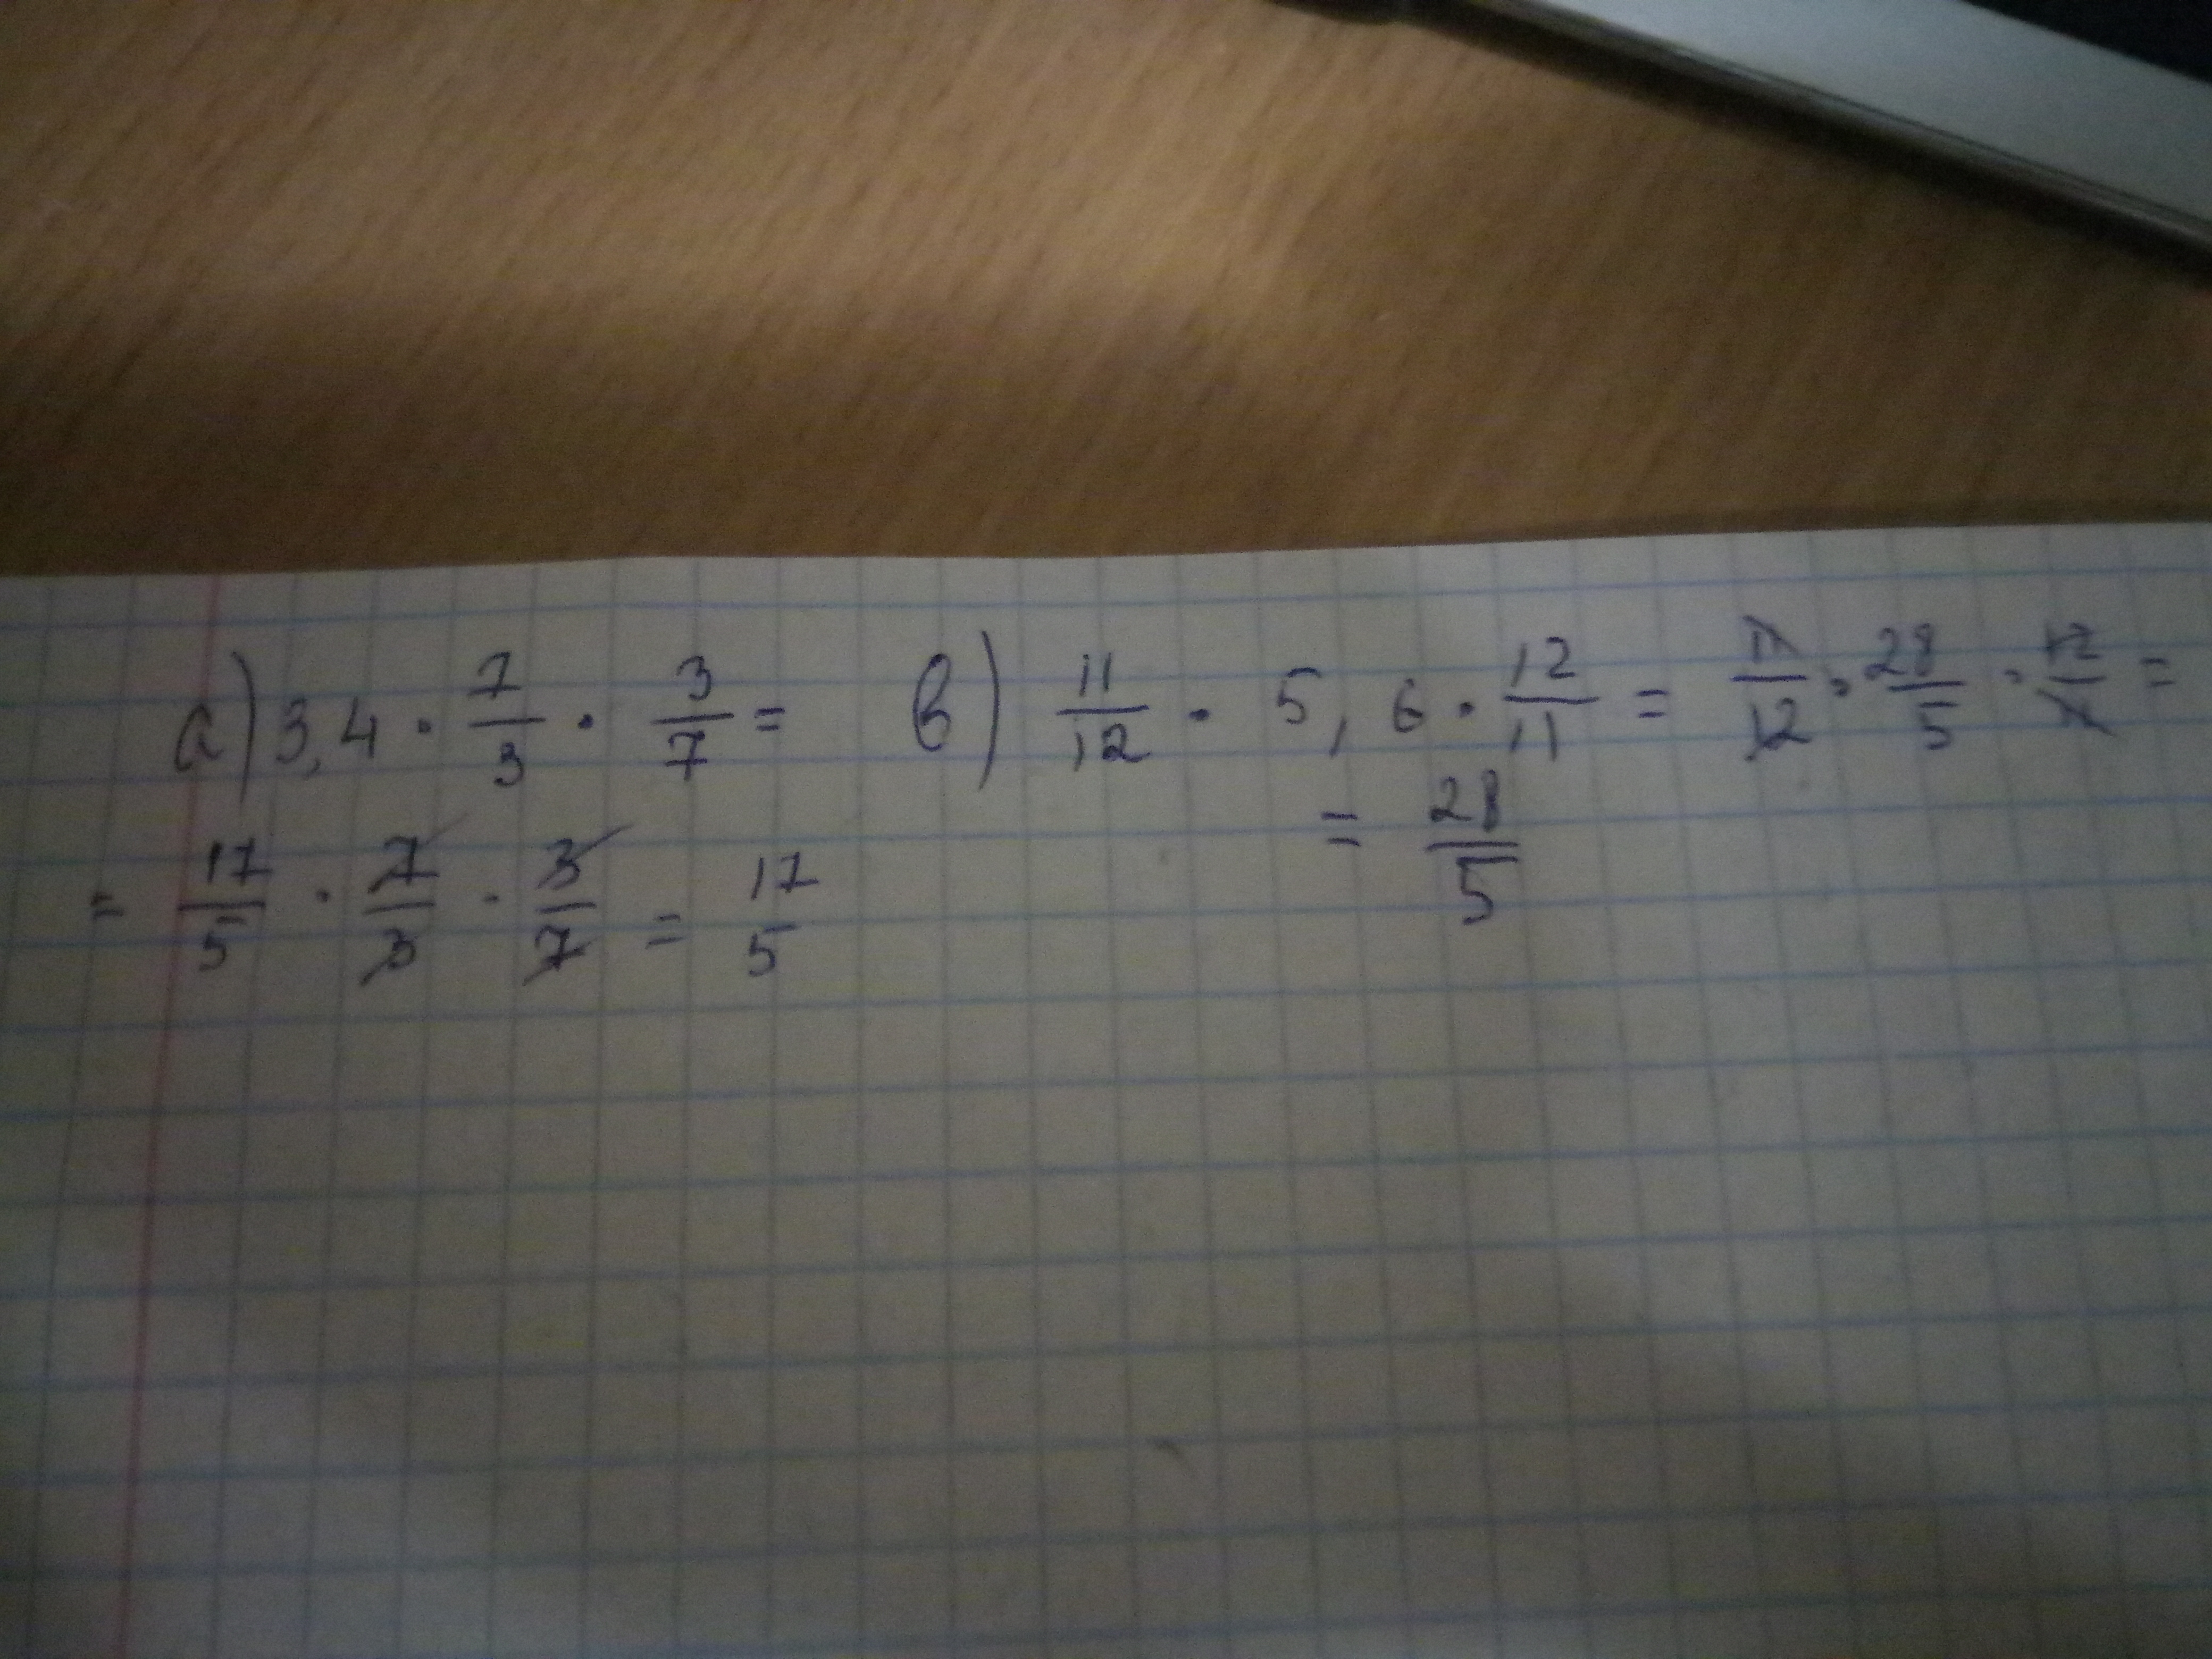 а) 3,4 · 7/3 · 3/7 =
= 17/5 · 7/3 · 3/7 = 17 5
в) 11/12 · 5,6 · 12/11 = 11/12 · 28/5 · 12/11 =
= 28/5